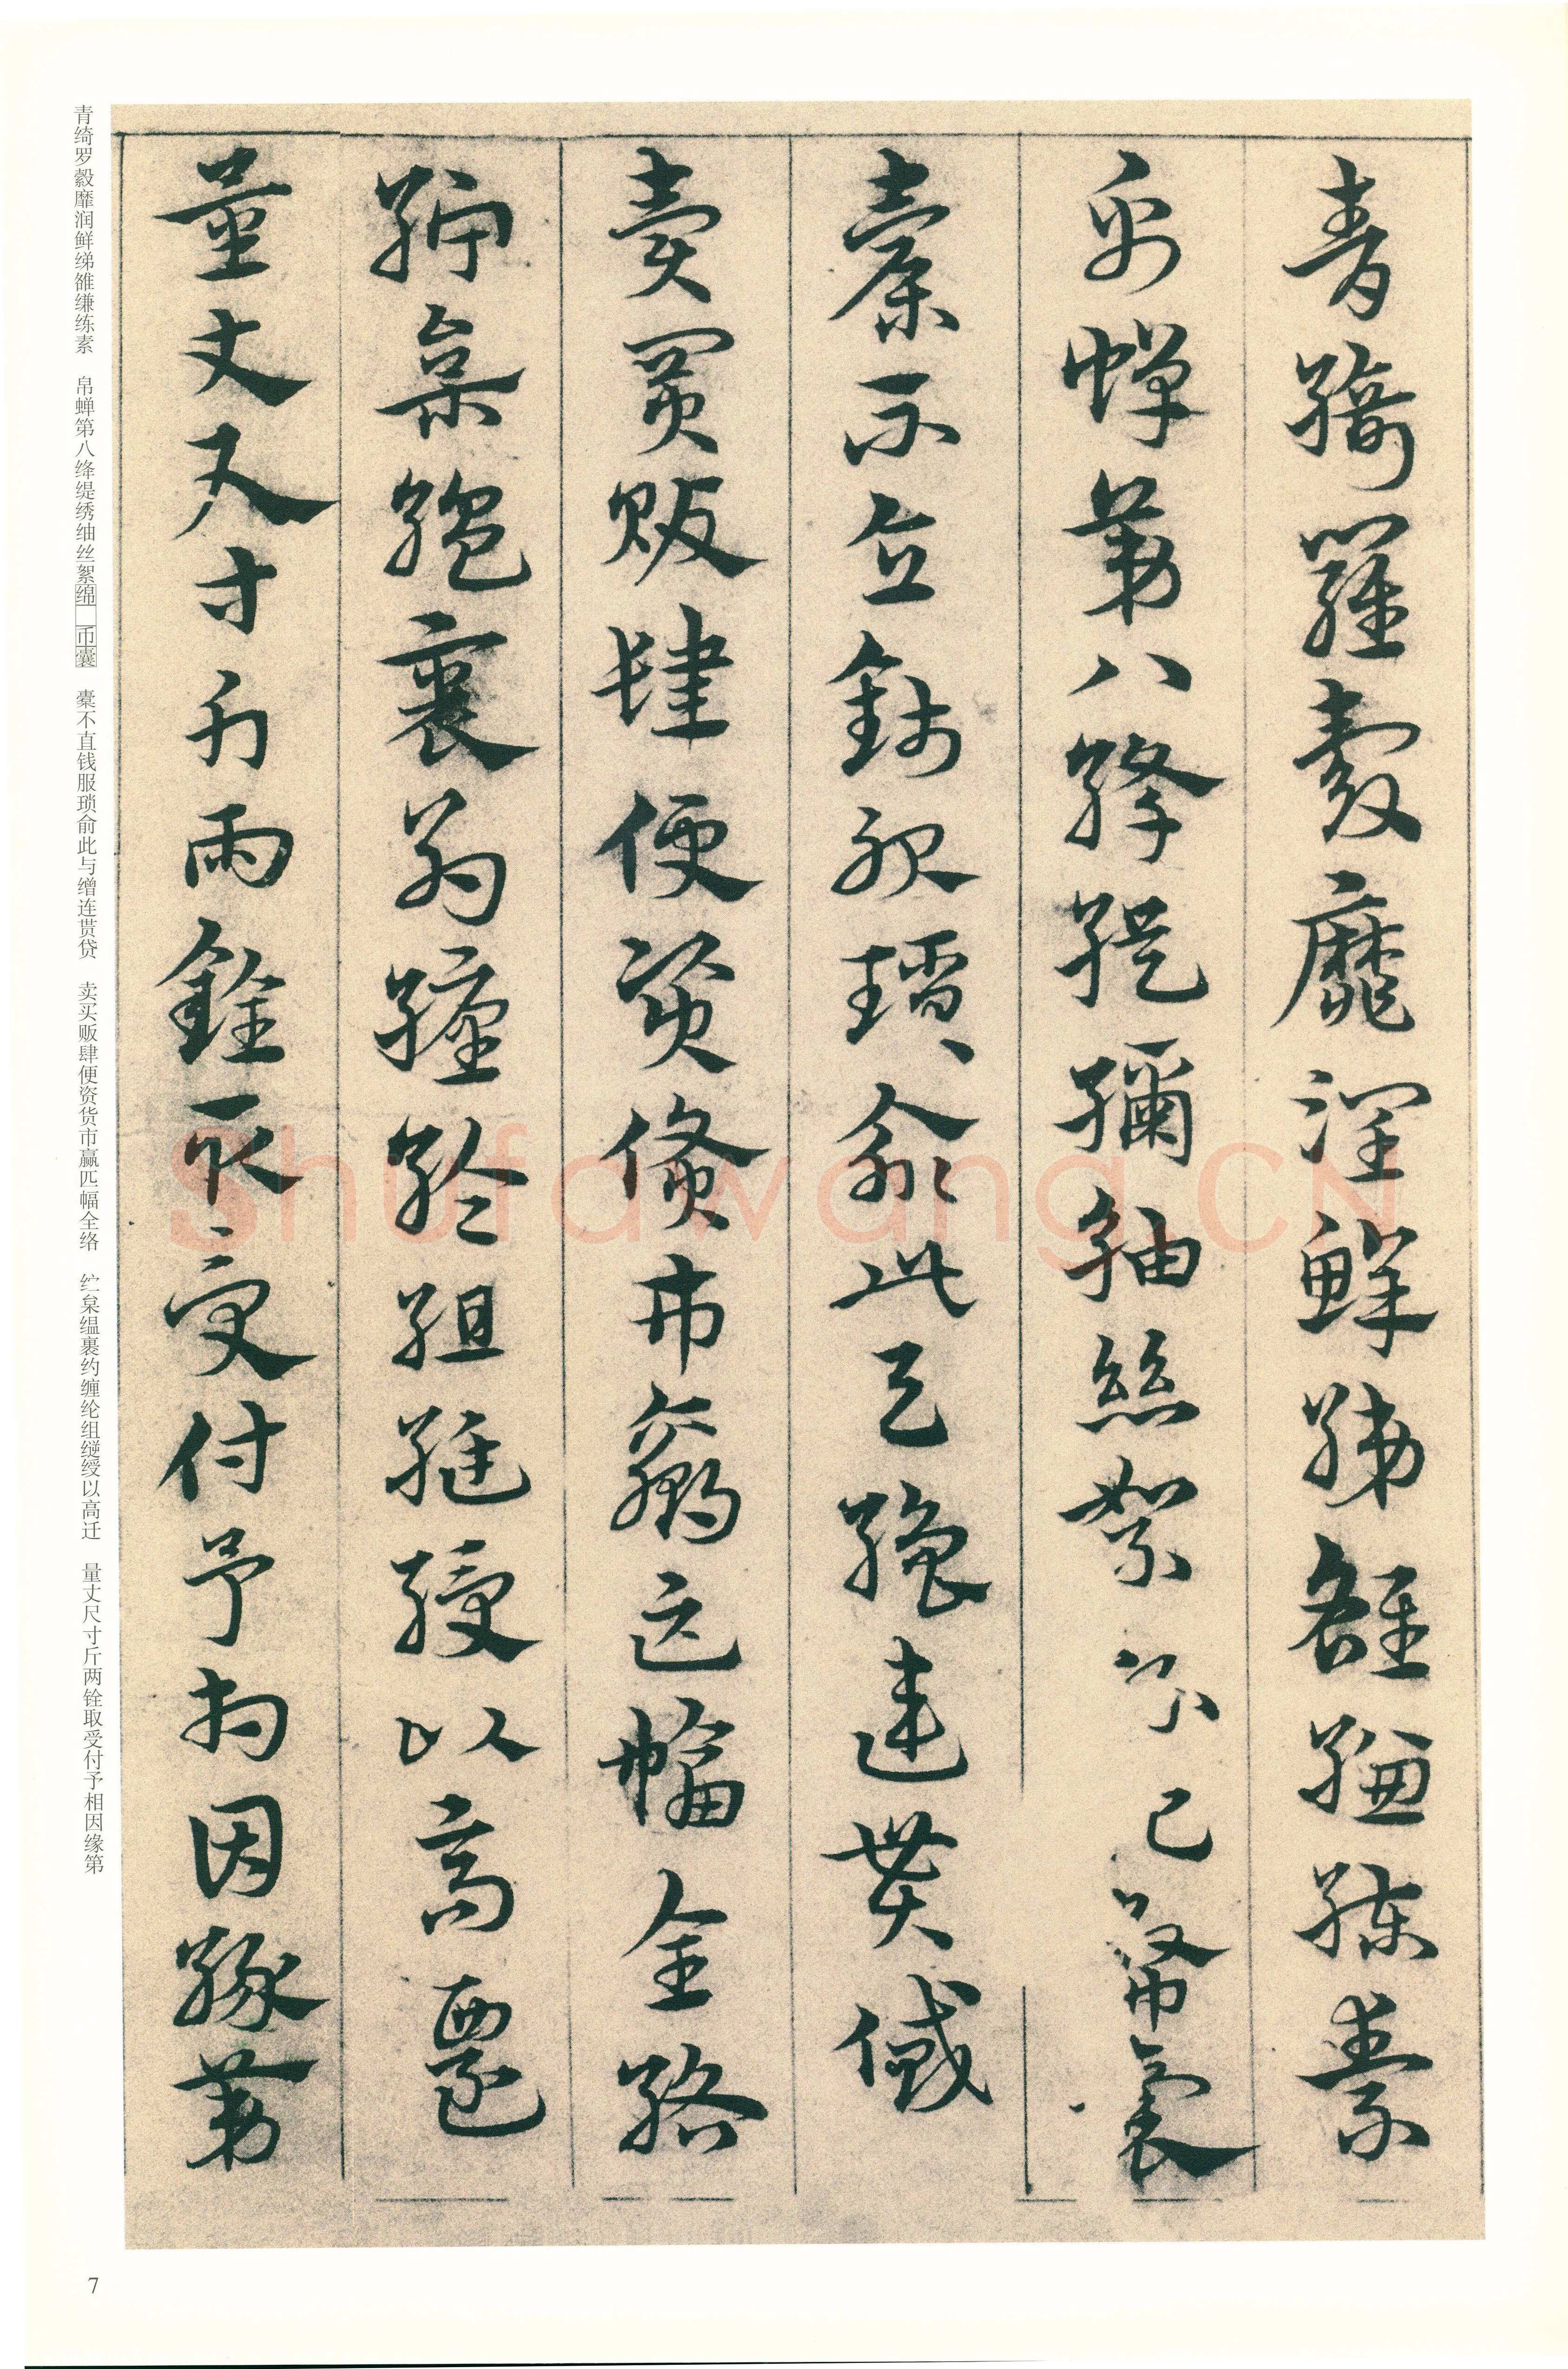 青綺羅縠靡潤鮮綈雒縑練素
帛蟬第八絳緹繡紬絲絮幣囊
橐不直錢服瑣俞此與繒連貰貸
賣買販肆便資貨市贏匹幅全絡
紵枲縕裹約纏綸組縌綬以高遷
量丈尺寸斤兩銓取受付予相因緣第
青绮罗縠靡润鲜绨雒缣练素 帛蝉第八绛缇绣䌷丝絮绵 币囊 橐不直钱服琐俞此与缯连贳贷 卖买贩肆便资货市赢匹幅全络 纻枲缊裹约缠纶组縌绶以高迁 量丈尺寸斤两铨取受付予相因缘第
7
Shufawang.CN